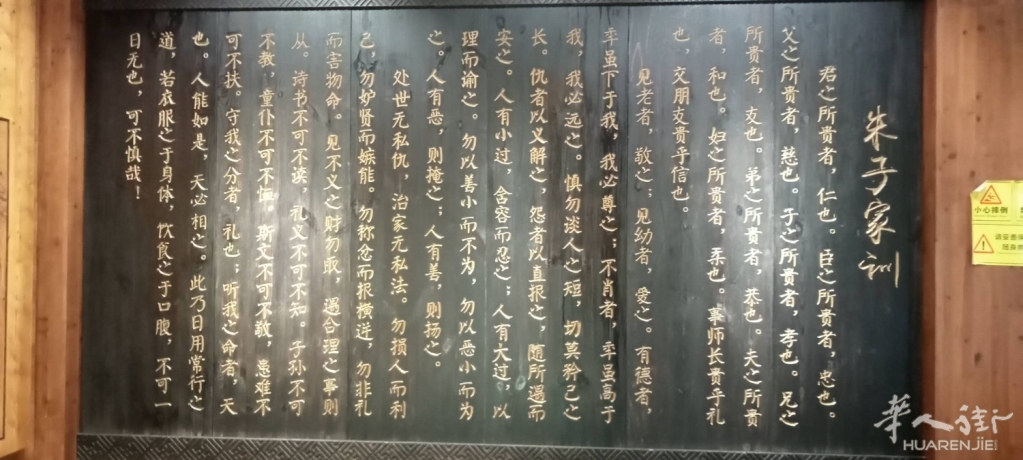 朱子家训
君之所贵者，仁也。臣之所贵者，忠也。
父之所贵者，慈也。子之所贵者，孝也。兄之
所贵者，友也。弟之所贵者，恭也。夫之所贵
者，和也。妇之所贵者，柔也。事师长贵乎礼
也，交朋友贵乎信也。
见老者，敬之；见幼者，爱之。有德者，
年虽下于我，我必尊之；不肖者，年虽高于
我，我必远之。慎勿谈人之短，切莫矜己之
长。仇者以义解之，怨者以直报之，随所遇而
安之。人有小过，含容而忍之；人有大过，以
理而谕之。勿以善小而不为，勿以恶小而为
之。人有恶，则掩之；人有善，则扬之。
处世无私仇，治家无私法。勿损人而利
己，勿妒贤而嫉能。勿称忿而报横逆，勿非礼
而害物命。见不义之财勿取，遇合理之事则
从。诗书不可不读，礼义不可不知。子孙不可
不教，童仆不可不恤。斯文不可不敬，患难不
可不扶。守我之分者，礼也；听我之命者，天
也。人能如是，天必相之。此乃日用常行之
道，若衣服之于身体，饮食之于口腹，不可一
日无也，可不慎哉！
小心摔倒
请妥善保
随身
华人街
HUARENJIE